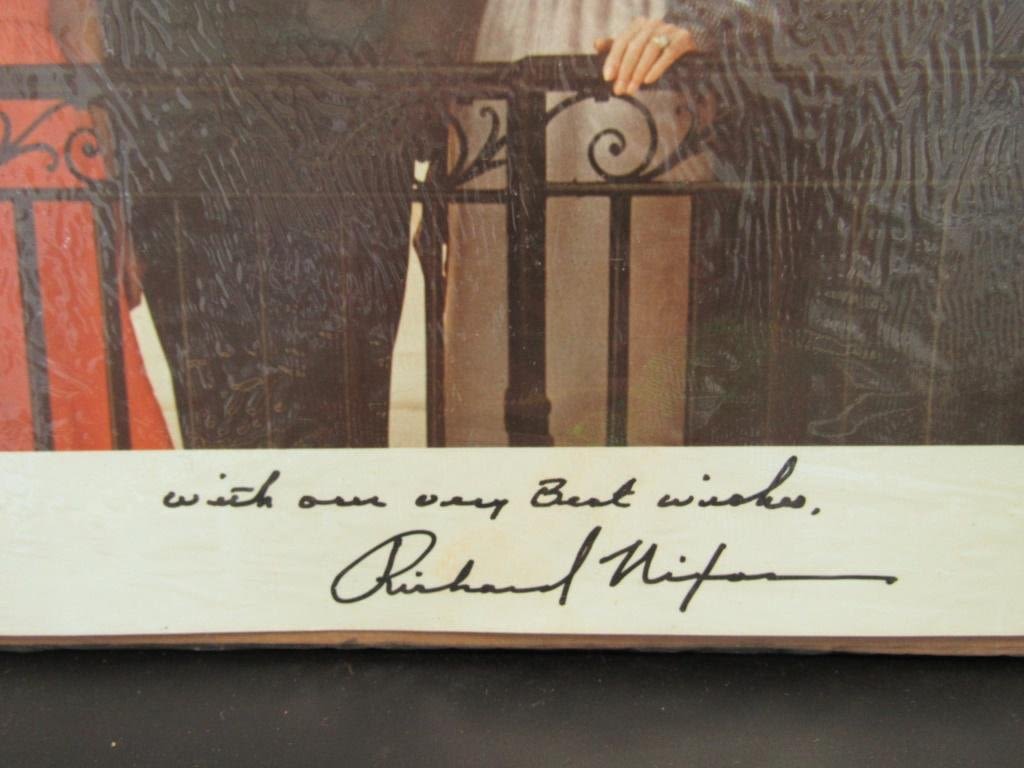 with our very Best wishes,
Richard Nixon